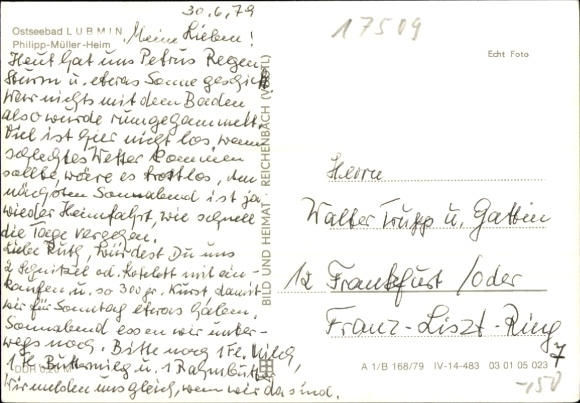 30.6.79
17509
Ostseebad LUBMIN
Philipp-Müller-Heim
Meine Lieben!
Echt Foto
Heut hat uns Petrus Regen,
Sturm u. etwas Sonne geschickt
War nichts mit dem Baden
also wurde rumgegammelt.
Viel ist hier nicht los, wenn
schlechtes Wetter kommen
sollte, wäre es trostlos, den
nächsten Sonnabend ist ja
wieder Heimfahrt, wie schnell
die Tage vergehen.
Liebe Ruth, würdest Du uns
2 Schnitzel od. Kotelett mit ein-
kaufen u. so 300 gr. Wurst damit
wir für Sonntag etwas haben.
Sonnabend essen wir unter-
wegs noch. Bitte noch 1 Fl. Milch,
1 Fl. Buttermilch u. 1 Rahmbutter
wir melden uns gleich, wenn wir da sind.
DDR 0,20 M
BILD UND HEIMAT · REICHENBACH (VOGTL)
Herrn
Walter Trupp u. Gattin
12 Frankfurt /Oder
Franz-Liszt-Ring
7
A 1/B 168/79 IV-14-483 03 01 05 023
-150